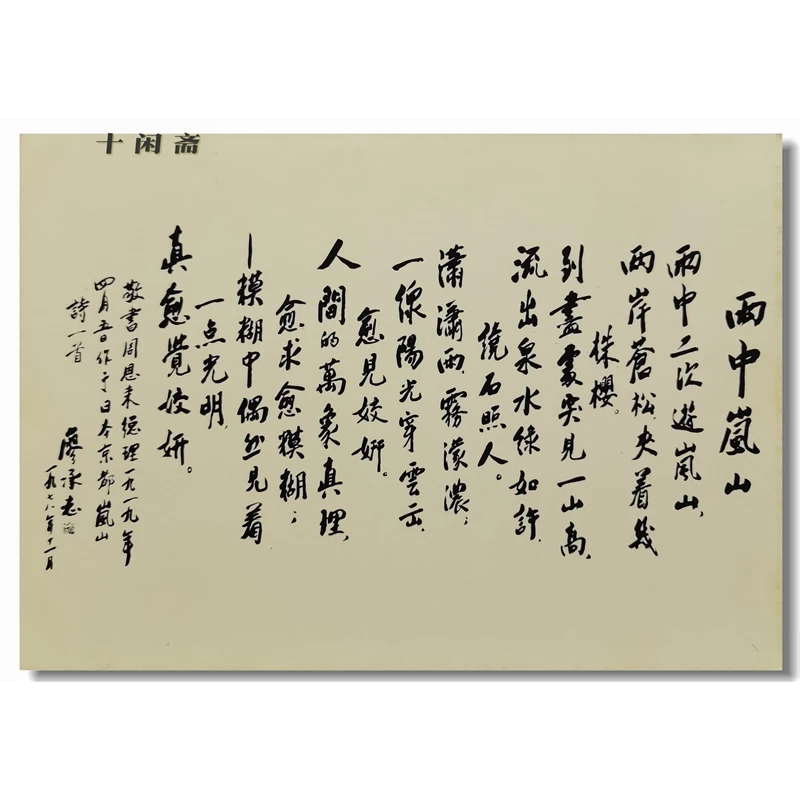 十闲斋
雨中嵐山
雨中二次遊嵐山，
兩岸蒼松，夾着幾
株櫻。
到盡處突見一山高，
流出泉水綠如許，
繞石照人。
瀟瀟雨，霧濛濃；
一線陽光穿雲出，
愈見姣妍。
人間的萬象真理，
愈求愈模糊；
—模糊中偶然見着
一点光明，
真愈覺姣妍。
敬書周恩来總理一九一九年
四月五日作于日本京都嵐山
詩一首
廖承志
一九七八年十一月